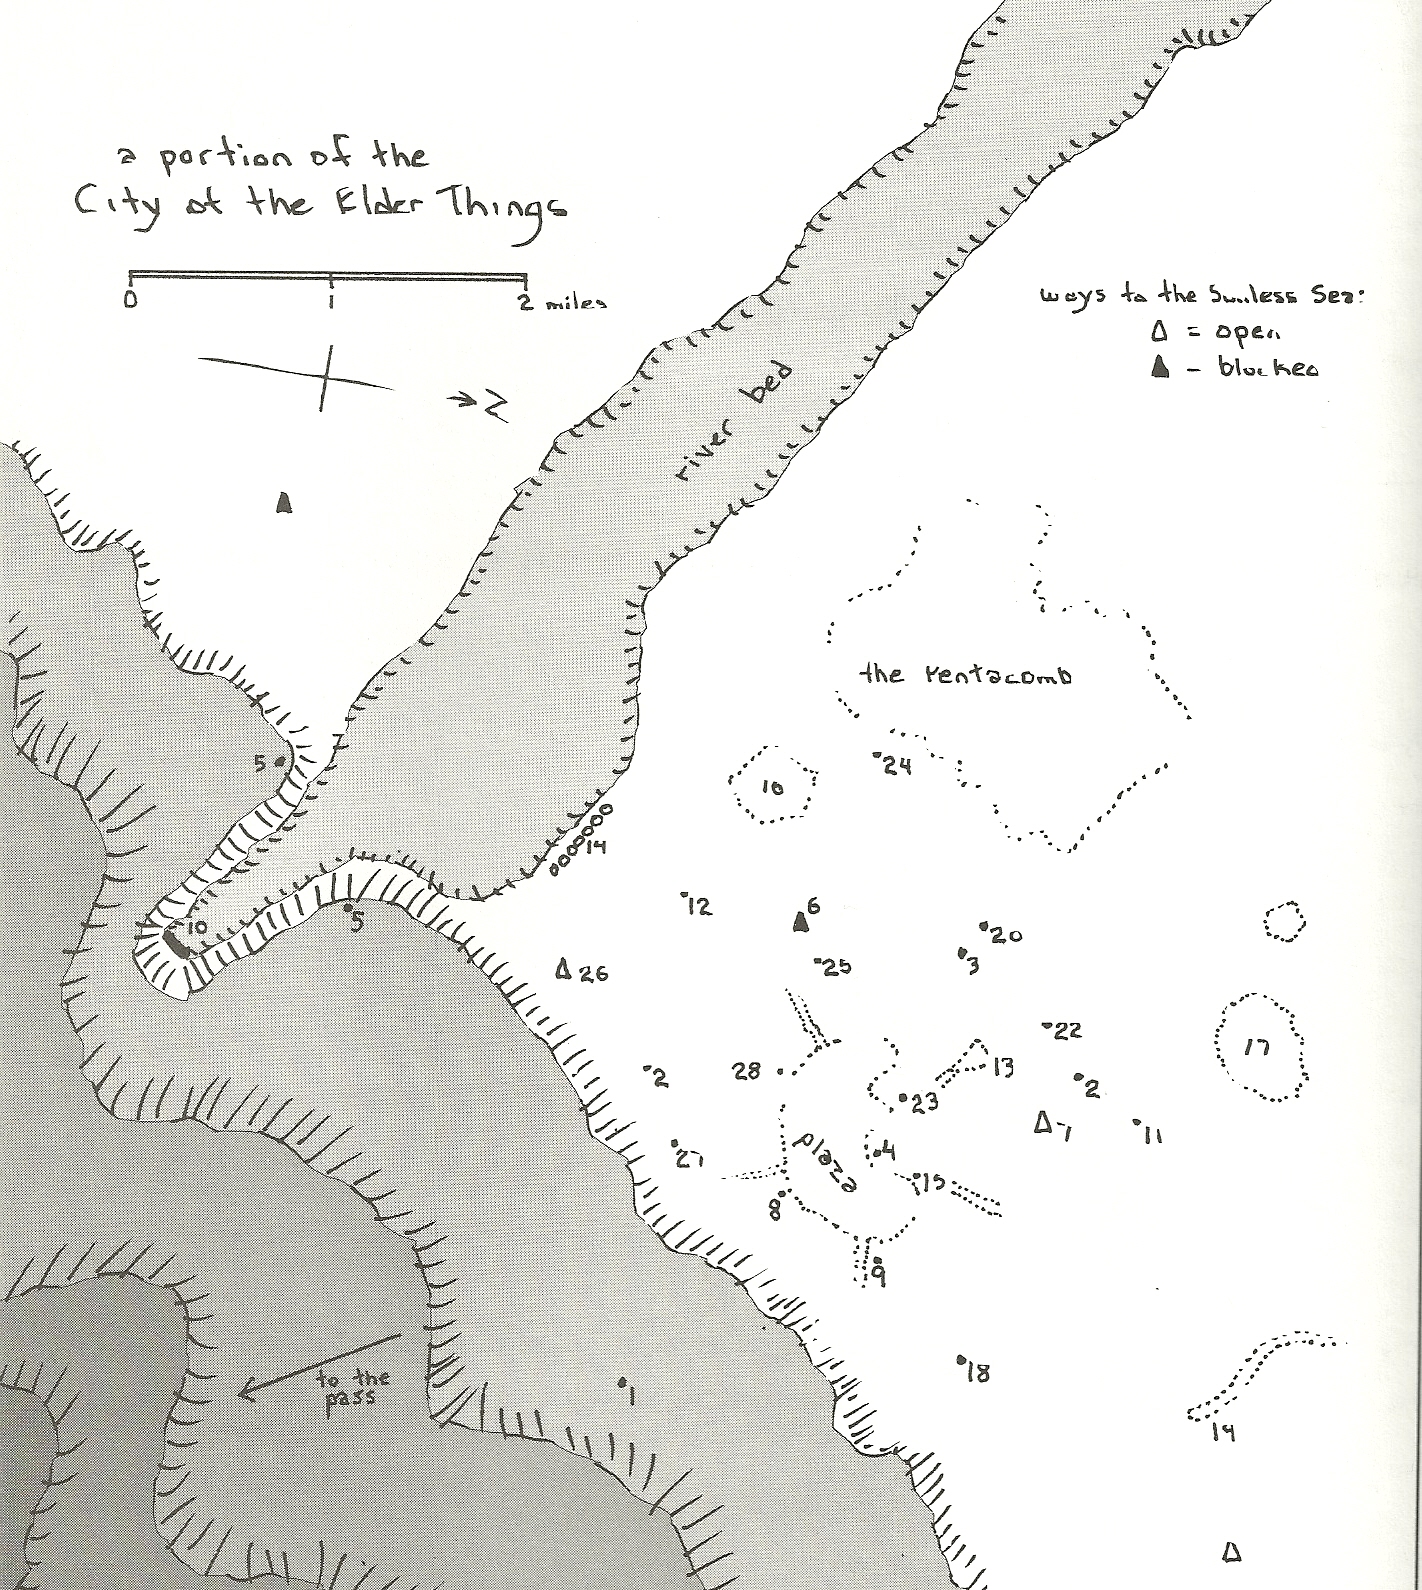 a portion of the
City of the Elder Things
0 1 2 miles
N
ways to the Sunless Sea:
= open
- blocked
river bed
the Pentacomb
5
24
16
14
12
6
10
5
20
3
25
26
22
17
28
13
2
2
23
7
11
4
27
plaza
15
8
9
18
to the
pass
1
19